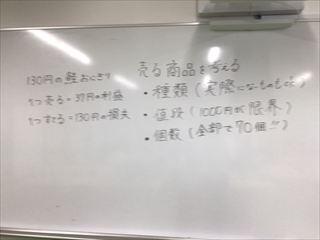 130円の鮭おにぎり
1つ売る=37円の利益
1つすてる=130円の損失
売る商品を考える
・種類(実際にな
・値段(1000円が限界)
・個数(全部で70個!!)